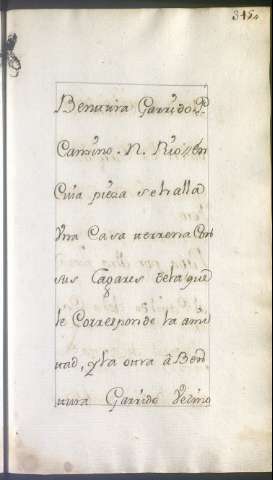 315
Benttura Garrido P.
Camino. N. Rio // en
Cuia pieza se halla
Vna Casa terrena Con
sus Lagares de la que
le Corresponde la ami
tad, y la otra â Ben
ttura Garrido Vecino